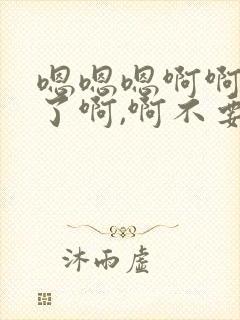 嗯嗯嗯啊啊
了啊,啊不要
沐雨虚